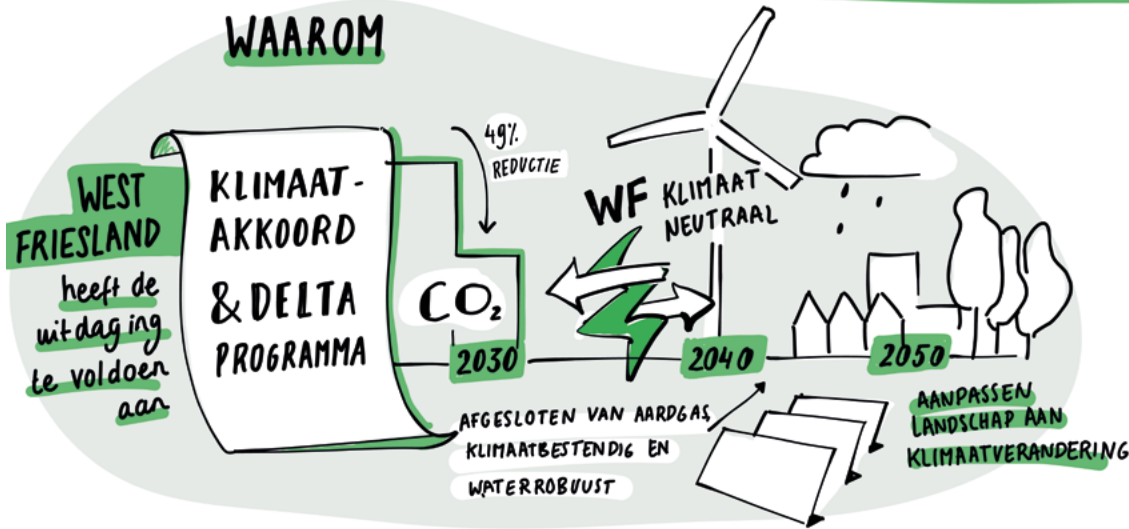 WAAROM
WEST
FRIESLAND
heeft de
uitdaging
te voldoen
aan
KLIMAAT-
AKKOORD
& DELTA
PROGRAMMA
49%
REDUCTIE
CO₂
2030
WF KLIMAAT
NEUTRAAL
2040
2050
AFGESLOTEN VAN AARDGAS,
KLIMAATBESTENDIG EN
WATERROBUUST
AANPASSEN
LANDSCHAP AAN
KLIMAATVERANDERING